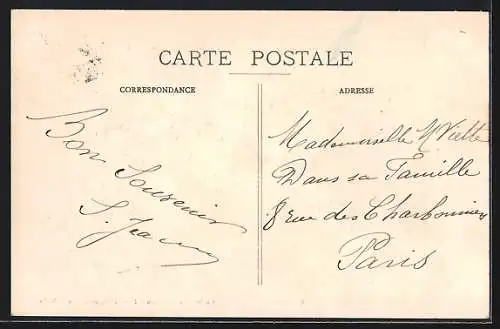 CARTE POSTALE
CORRESPONDANCE
ADRESSE
Bon
Souvenir
Mademoiselle M Viette
Dans sa Famille
8 rue des Charbonniers
Paris